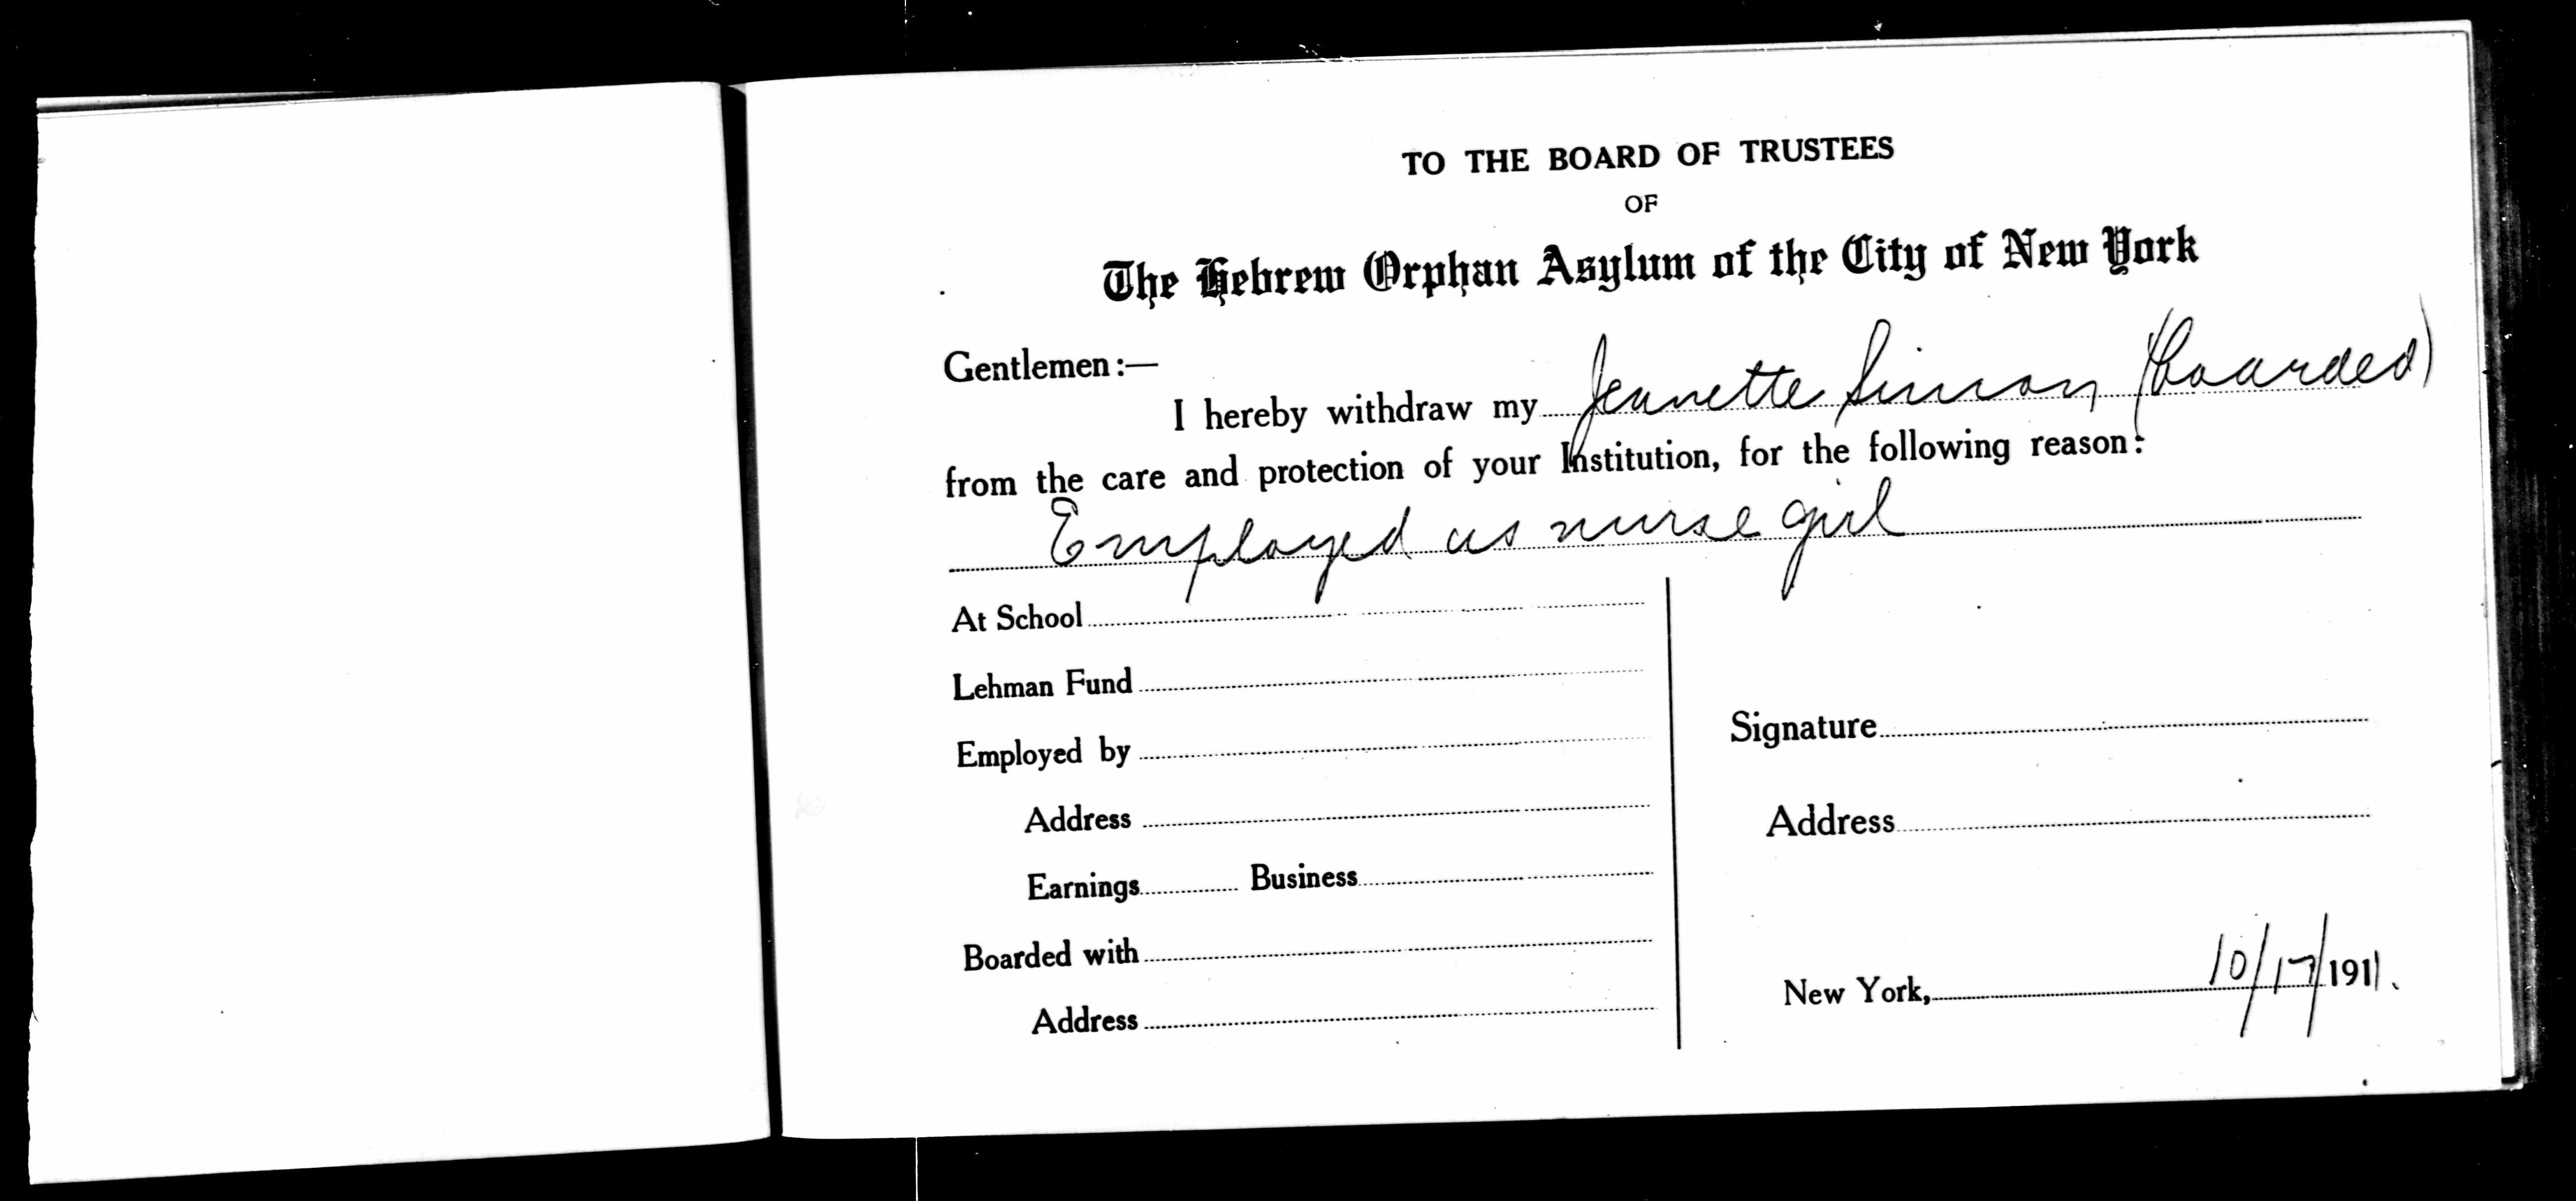 TO THE BOARD OF TRUSTEES
OF
The Hebrew Orphan Asylum of the City of New York
Gentlemen:—
I hereby withdraw my Jeanette Simon (boarded)
from the care and protection of your Institution, for the following reason:
Employed as nurse girl
At School
Lehman Fund
Employed by
Address
Earnings Business
Boarded with
Address
Signature
Address
New York, 10/17/1911.